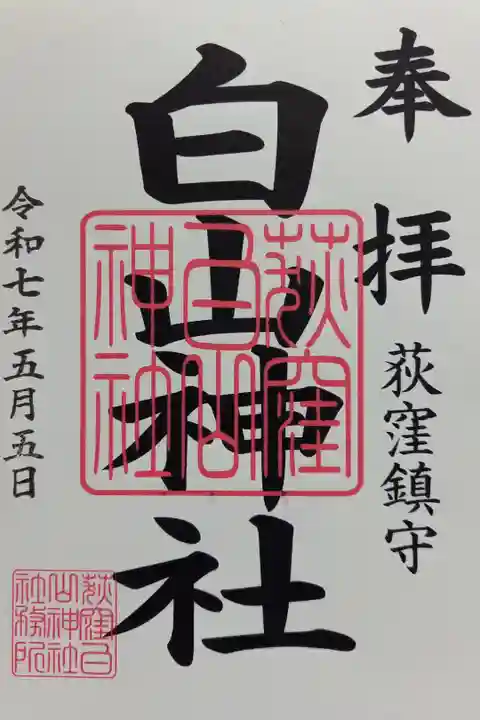 奉拝
荻窪鎮守
白山神社
荻窪白山神社
令和七年五月五日
荻窪白山神社社務所